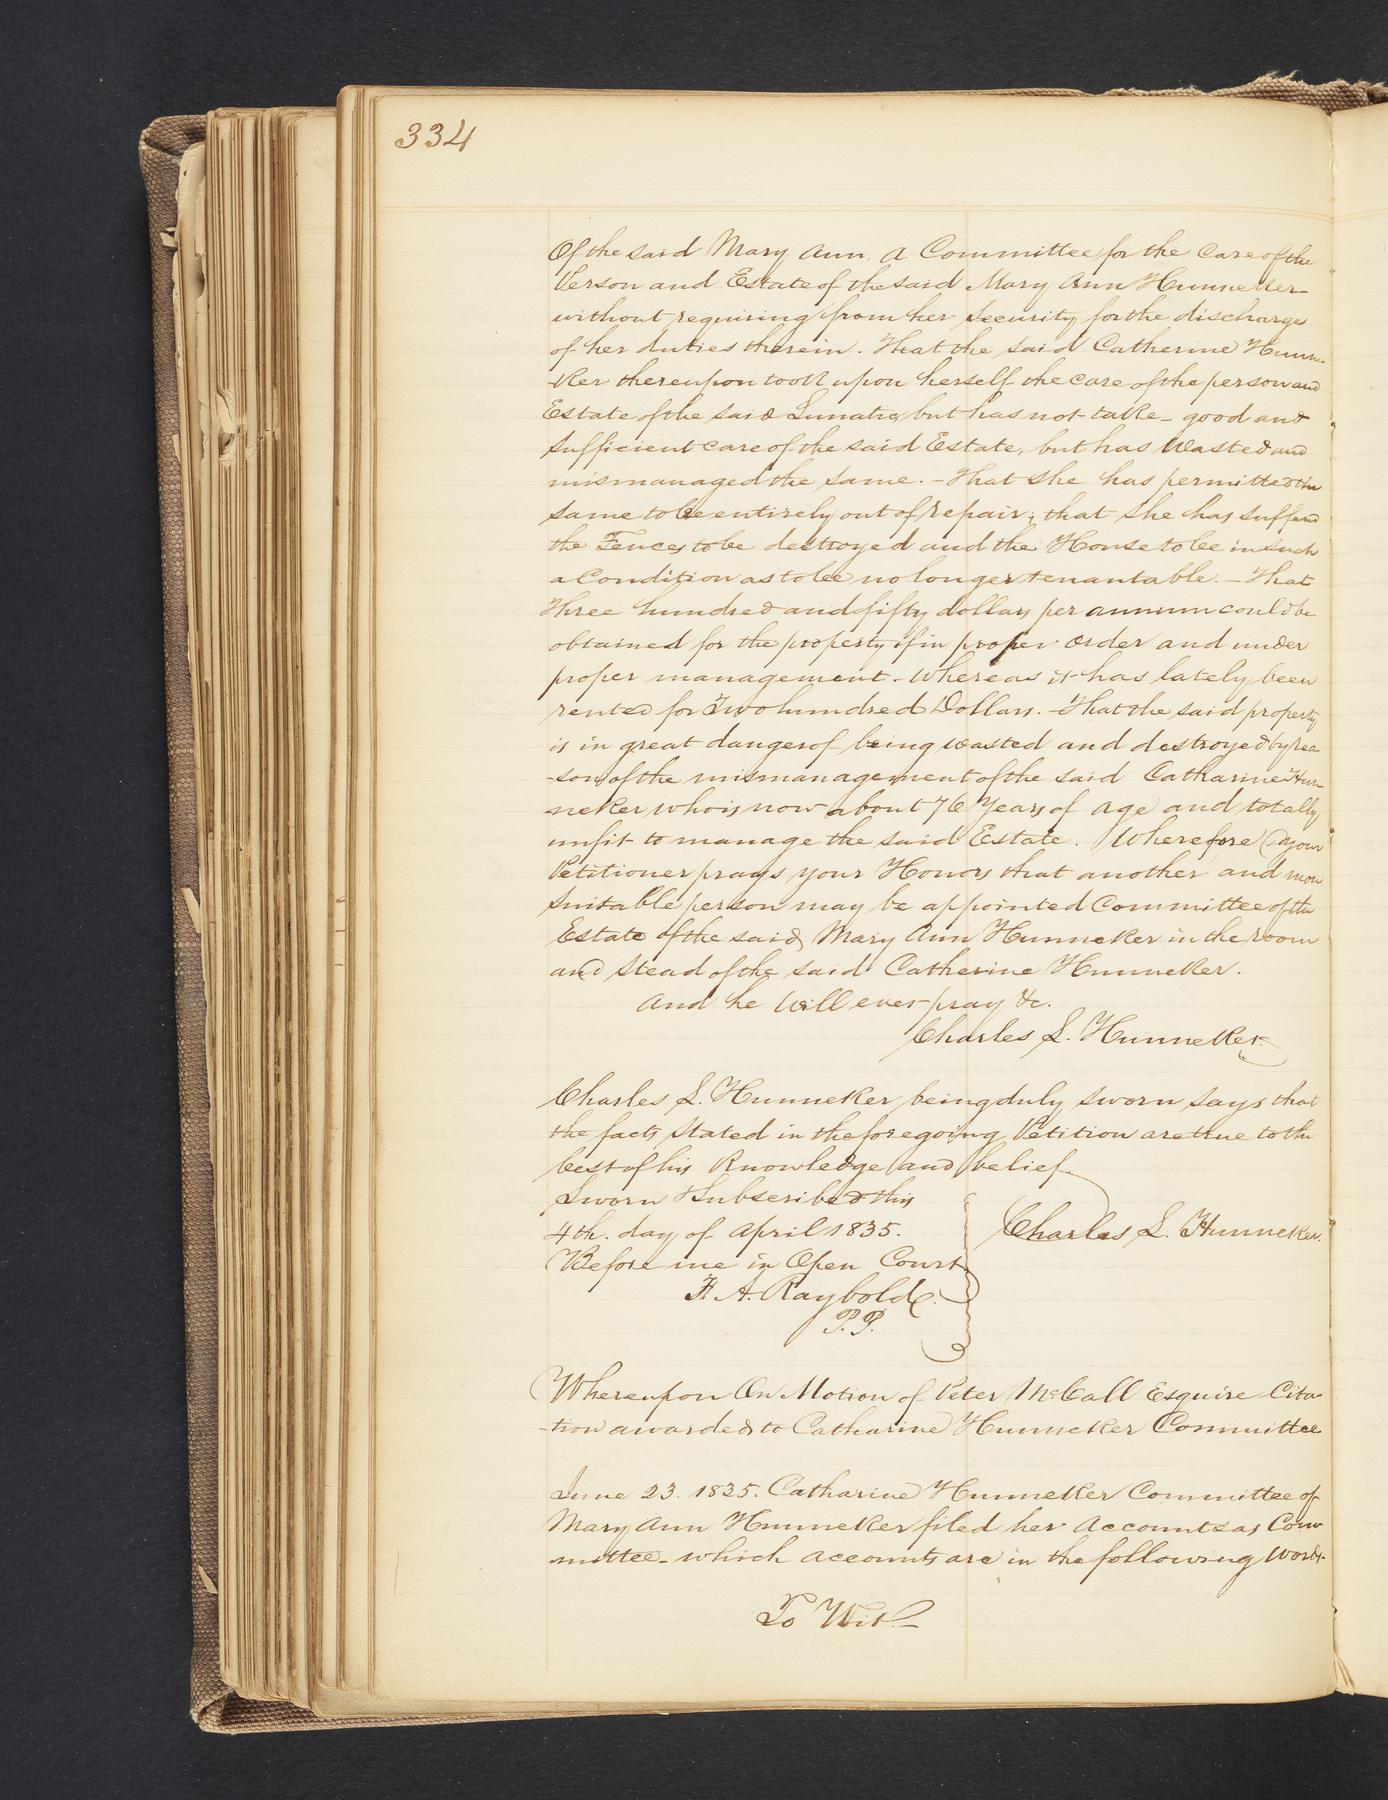 334
Of the said Mary Ann. A Committee for the Care of the
Person and Estate of the said Mary Ann Hunneker
without requiring from her Security for the discharge
of her duties therein. That the said Catherine Hunne-
-ker thereupon took upon herself the care of the person and
Estate of the said Lunatic, but has not take- good and
Sufficient care of the said Estate, but has Wasted and
mismanaged the same. - That she has permitted the
same to be entirely out of repair; that she has suffered
the Fences to be destroyed and the House to be in such
a Condition as to be no longer tenantable. - That
Three hundred and fifty dollars per annum could be
obtained for the property if in proper order and under
proper management - Whereas it has lately been
rented for Two hundred Dollars. - That the said property
is in great danger of being wasted and destroyed by rea-
-son of the mismanagement of the said Catharine Hun-
neker who is now about 76 Years of age and totally
unfit to manage the said Estate. Wherefore your
Petitioner prays your Honors that another and more
Suitable person may be appointed Committee of the
Estate of the said Mary Ann Hunneker in the room
and Stead of the said Catherine Hunneker.
And he Will ever pray &c.
Charles L. Hunneker
Charles L. Hunneker being duly sworn says that
the facts Stated in the foregoing Petition are true to the
best of his Knowledge and belief
Sworn & Subscribed this
4th. day of April 1835. Charles L. Hunneker.
Before me in Open Court
F. A. Raybold.
P.P.
Whereupon On Motion of Peter McCall Esquire Cita-
-tion awarded to Catharine Hunneker Committee
June 23. 1835. Catharine Hunneker Committee of
Mary Ann Hunneker filed her Accounts as Com
mittee - which accounts are in the following Words.
To Wit-